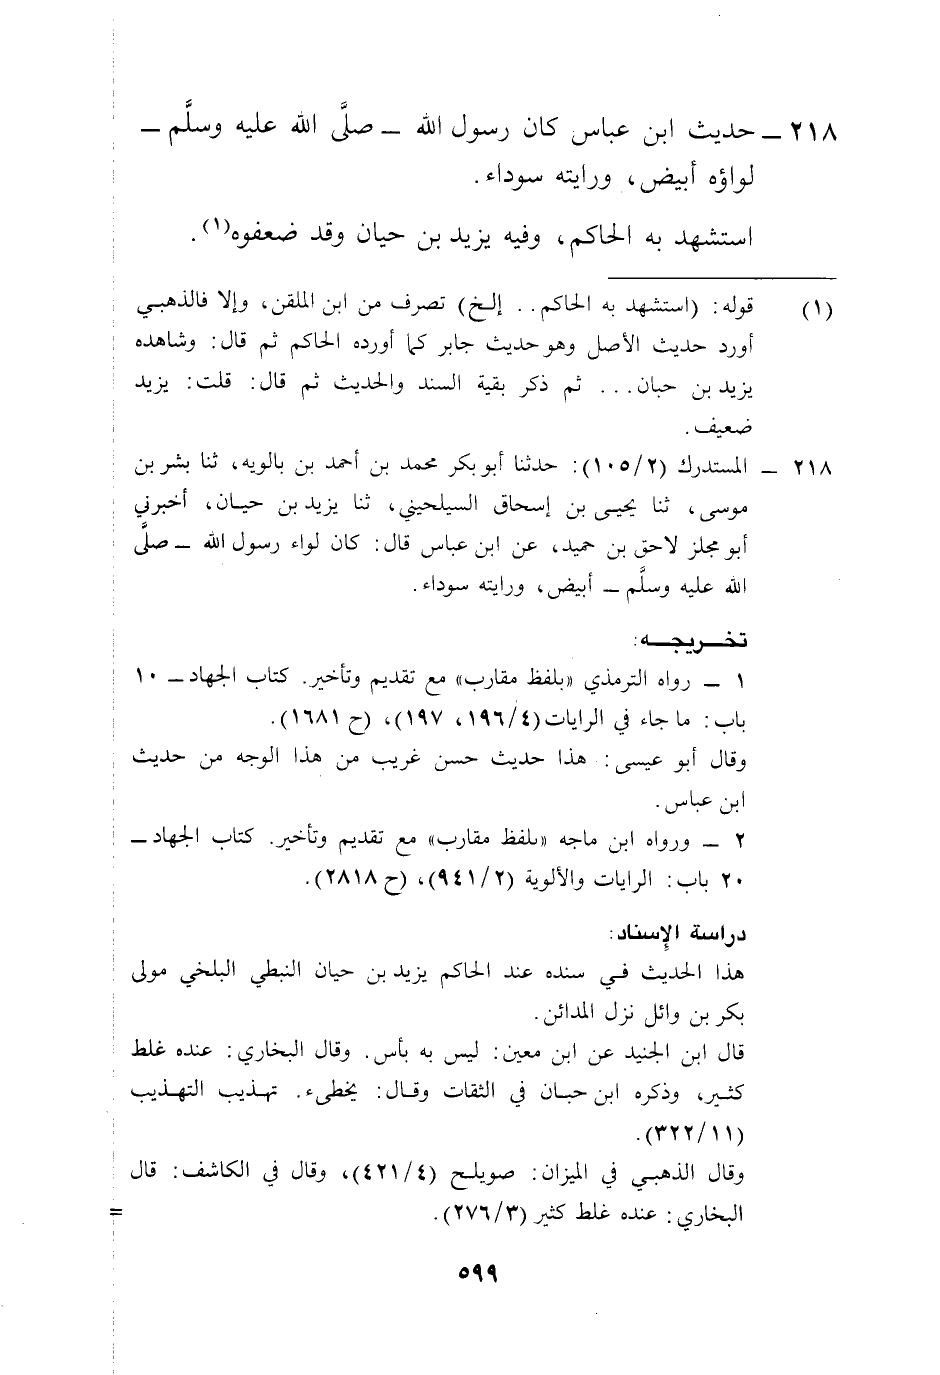 ٢١٨ ـ حديث ابن عباس كان رسول الله ـ صلَّى الله عليه وسلَّم ـ
لواؤه أبيض، ورايته سوداء.
استشهد به الحاكم، وفيه يزيد بن حيان وقد ضعفوه(١).
(١) قوله: (استشهد به الحاكم.. إلخ) تصرف من ابن الملقن، وإلا فالذهبي
أورد حديث الأصل وهو حديث جابر كما أورده الحاكم ثم قال: وشاهده
يزيد بن حبان... ثم ذكر بقية السند والحديث ثم قال: قلت: يزيد
ضعيف.
٢١٨ ـ المستدرك (١٠٥/٢): حدثنا أبو بكر محمد بن أحمد بن بالويه، ثنا بشر بن
موسى، ثنا يحيى بن إسحاق السيلحيني، ثنا يزيد بن حيان، أخبرني
أبو مجلز لاحق بن حميد، عن ابن عباس قال: كان لواء رسول الله ـ صلَّى
الله عليه وسلَّم ـ أبيض، ورايته سوداء.
تخـريجـه:
١ ـ رواه الترمذي «بلفظ مقارب» مع تقديم وتأخير. كتاب الجهاد ـ ١٠
باب: ما جاء في الرايات (١٩٦/٤، ١٩٧)، (ح ١٦٨١).
وقال أبو عيسى: هذا حديث حسن غريب من هذا الوجه من حديث
ابن عباس.
٢ ـ ورواه ابن ماجه «بلفظ مقارب» مع تقديم وتأخير. كتاب الجهاد ـ
٢٠ باب: الرايات والألوية (٩٤١/٢)، (ح ٢٨١٨).
دراسة الإسناد:
هذا الحديث في سنده عند الحاكم يزيد بن حيان النبطي البلخي مولى
بكر بن وائل نزل المدائن.
قال ابن الجنيد عن ابن معين: ليس به بأس. وقال البخاري: عنده غلط
كثير، وذكره ابن حبان في الثقات وقال: يخطىء. تهذيب التهذيب
(٣٢٢/١١).
وقال الذهبي في الميزان: صويلح (٤٢١/٤)، وقال في الكاشف: قال
البخاري: عنده غلط كثير (٢٧٦/٣). =
٥٩٩